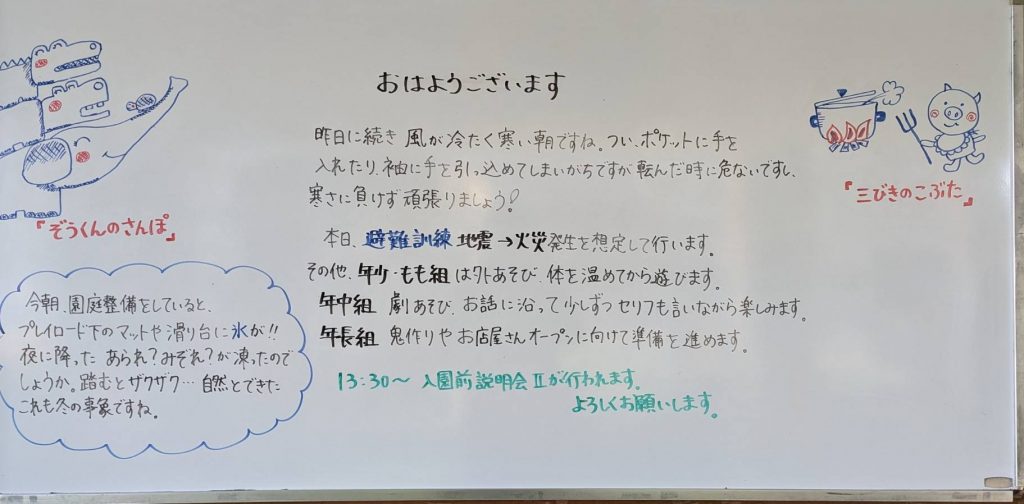 おはようございます
昨日に続き 風が冷たく寒い朝ですね。つい、ポケットに手を
入れたり、袖に手を引っ込めてしまいがちですが 転んだ時に危ないですし、
寒さに負けず 頑張りましょう!
本日、避難訓練 地震→火災発生を想定して行います。
その他、年少・もも組 は外あそび、体を温めてから遊びます。
年中組 劇あそび、お話に沿って少しずつ セリフも言いながら楽しみます。
年長組 鬼作りや お店屋さん オープンに向けて準備を進めます。
13:30〜 入園前説明会Ⅱが行われます。
よろしくお願いします。
『ぞうくんのさんぽ』
今朝、園庭整備をしていると、
プレイロード下のマットや滑り台に氷が!!
夜に降った あられ?みぞれ?が凍ったので
しょうか。踏むとザクザク… 自然とできた
これも冬の事象ですね。
『三びきのこぶた』